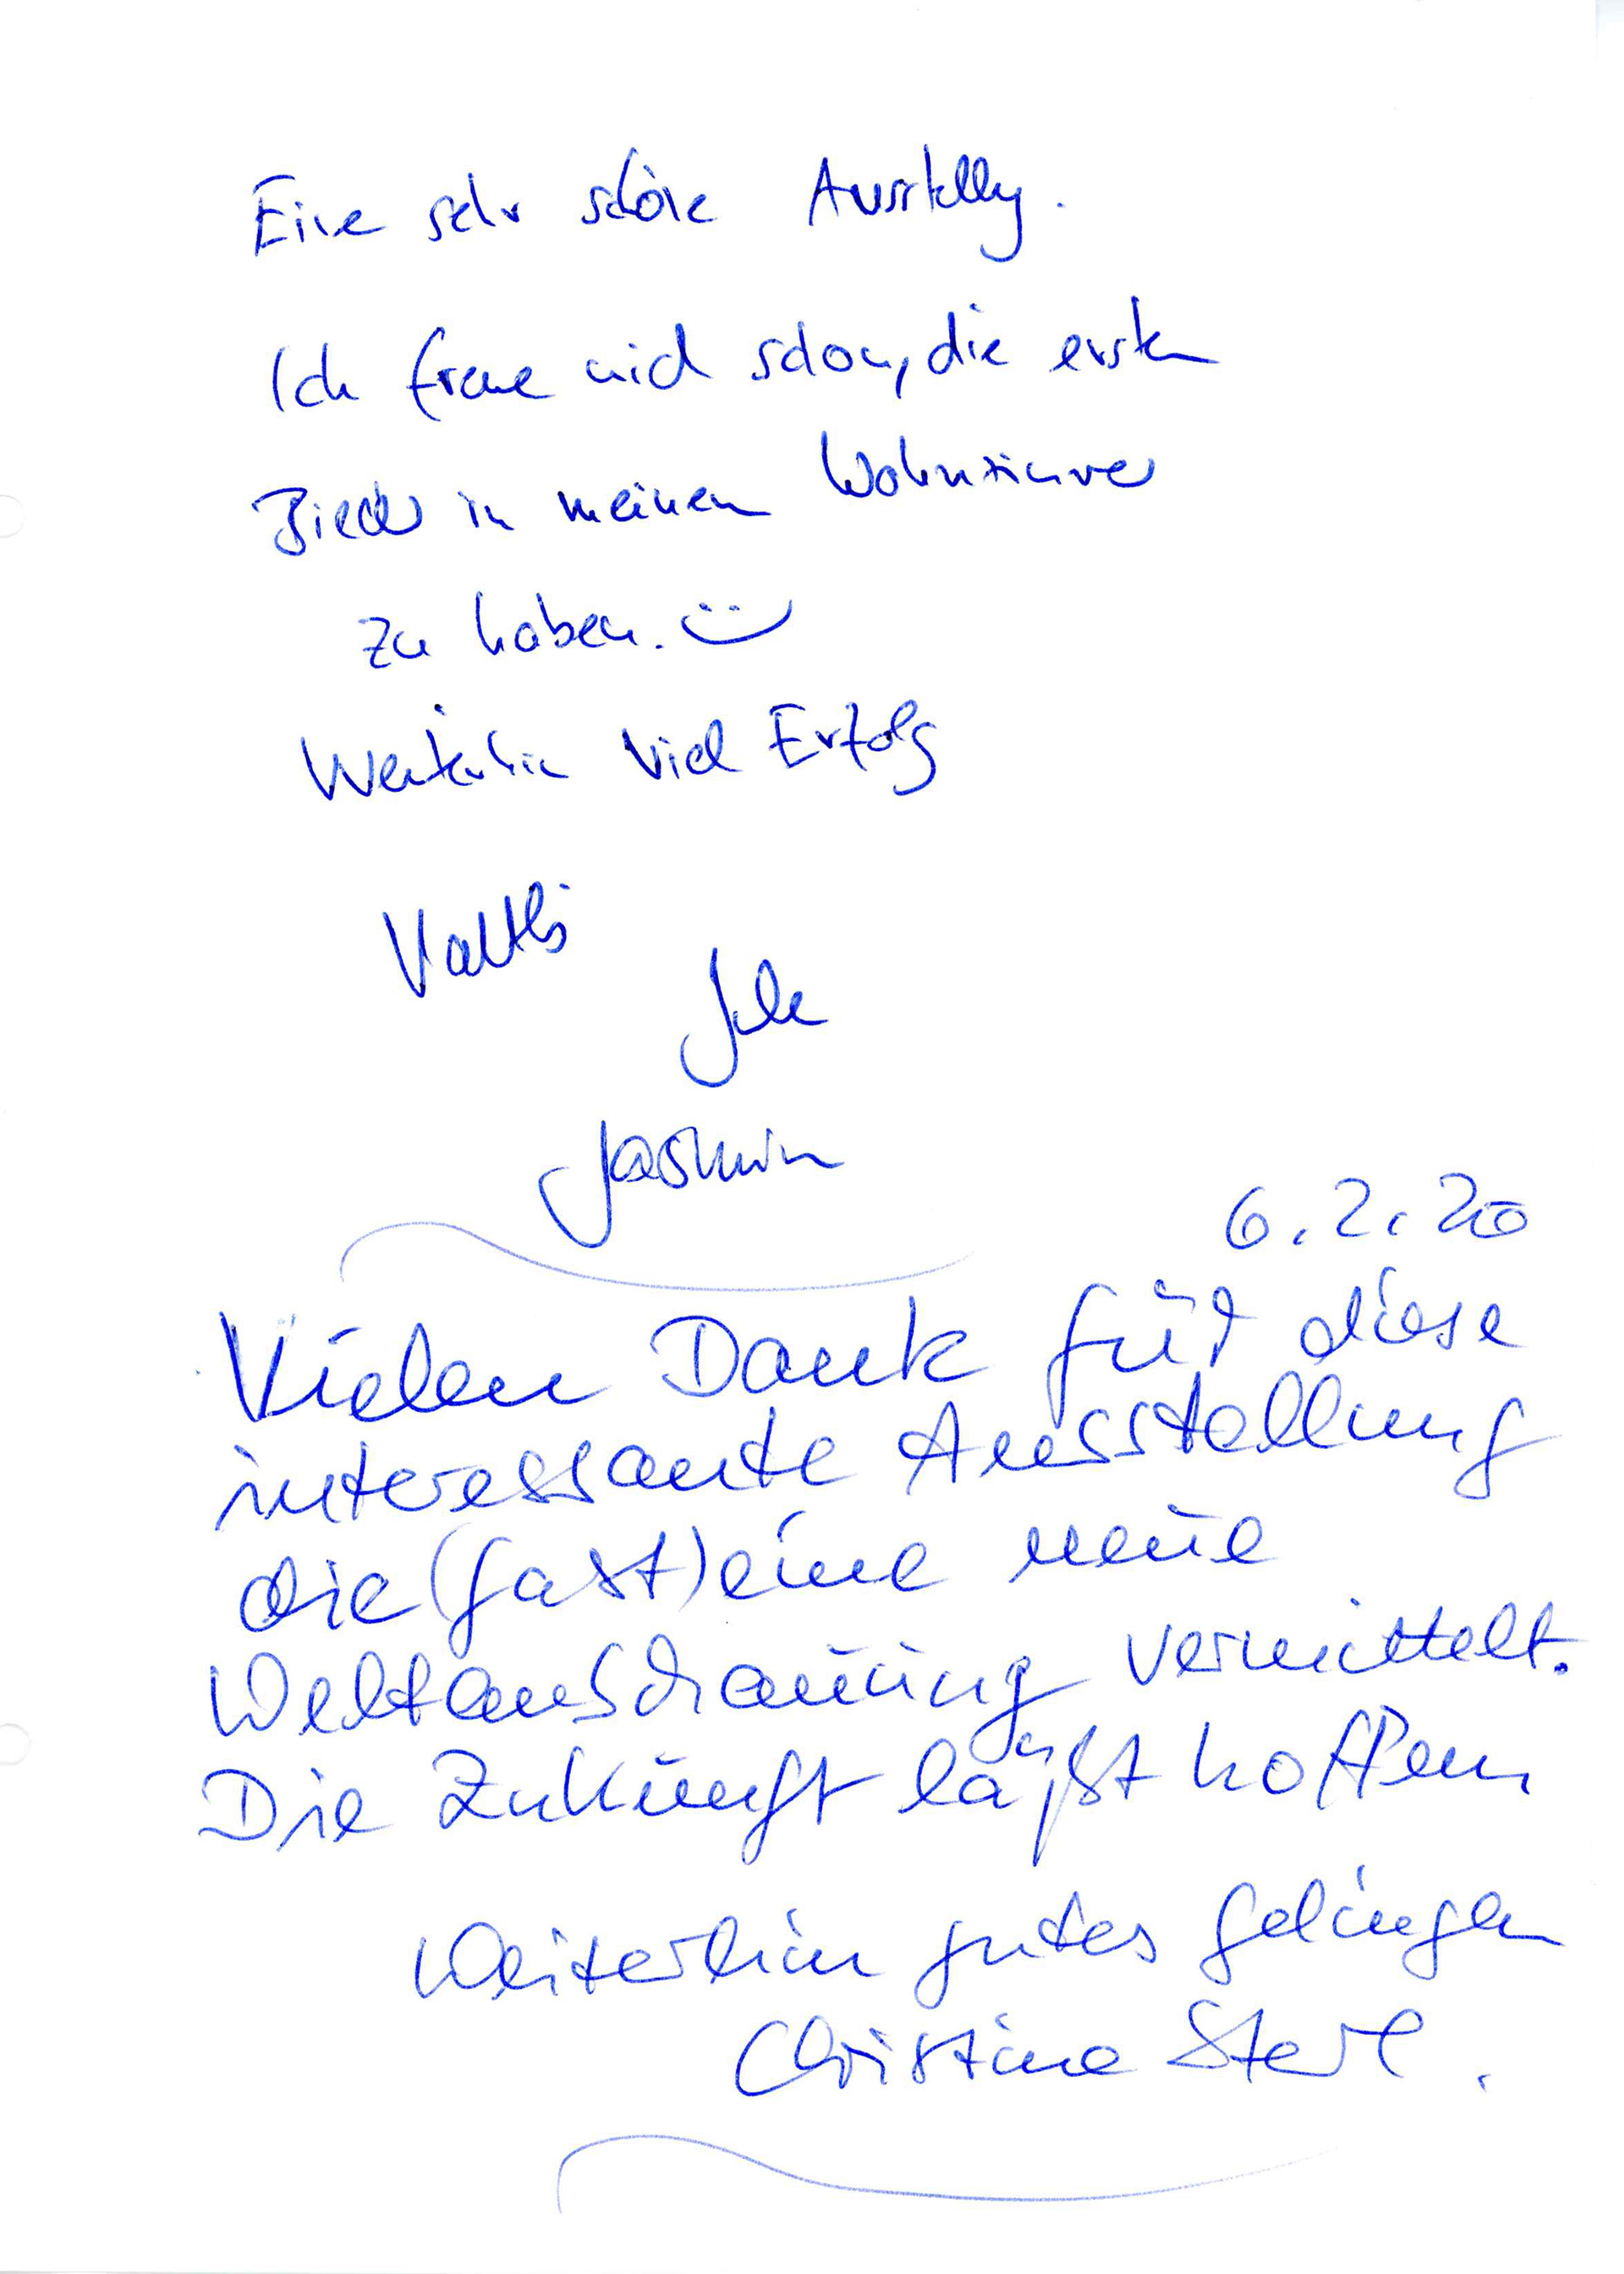 Eine sehr schöne Ausstellung.
Ich freue mich schon, die ersten
Bilder in meinem Wohnzimmer
zu haben. :)
Weiterhin viel Erfolg
Jasmin
6.2.20
Vielen Dank für diese
interessante Ausstellung
die (fast) eine neue
Weltanschauung vermittelt.
Die Zukunft läßt hoffen
Weiterhin gutes Gelingen
Christine Sterl.